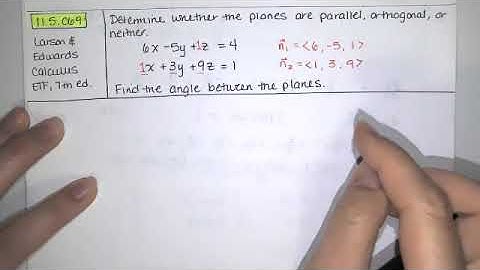 11.5.069
Larson &
Edwards
Calculus
ETF, 7th ed.
Determine whether the planes are parallel, orthogonal, or
neither.
6x -5y +1z = 4 n⃗₁ = <6, -5, 1>
1x +3y +9z = 1 n⃗₂ = <1, 3, 9>
Find the angle between the planes.